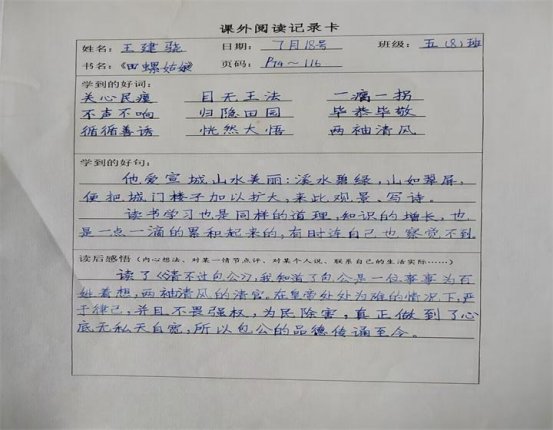 课外阅读记录卡
姓名：王建骁 日期：7月18号 班级：五（8）班
书名：《田螺姑娘》 页码：P74～116
学到的好词：
关心民瘼 目无王法 一瘸一拐
不声不响 归隐田园 毕恭毕敬
循循善诱 恍然大悟 两袖清风
学到的好句：
他爱宣城山水美丽：溪水碧绿，山如翠屏，
便把城门楼子加以扩大，来此观景、写诗。
读书学习也是同样的道理，知识的增长，也
是一点一滴的累积起来的，有时连自己也察觉不到
读后感悟（内心想法、对某一情节点评、对某个人说、联系自己的生活实际……）
读了《清不过包公》，我知道了包公是一位事事为百
姓着想，两袖清风的清官。在皇帝处处为难的情况下，严
于律己，并且不畏强权，为民除害，真正做到了心
底无私天自宽，所以包公的品德传诵至今。